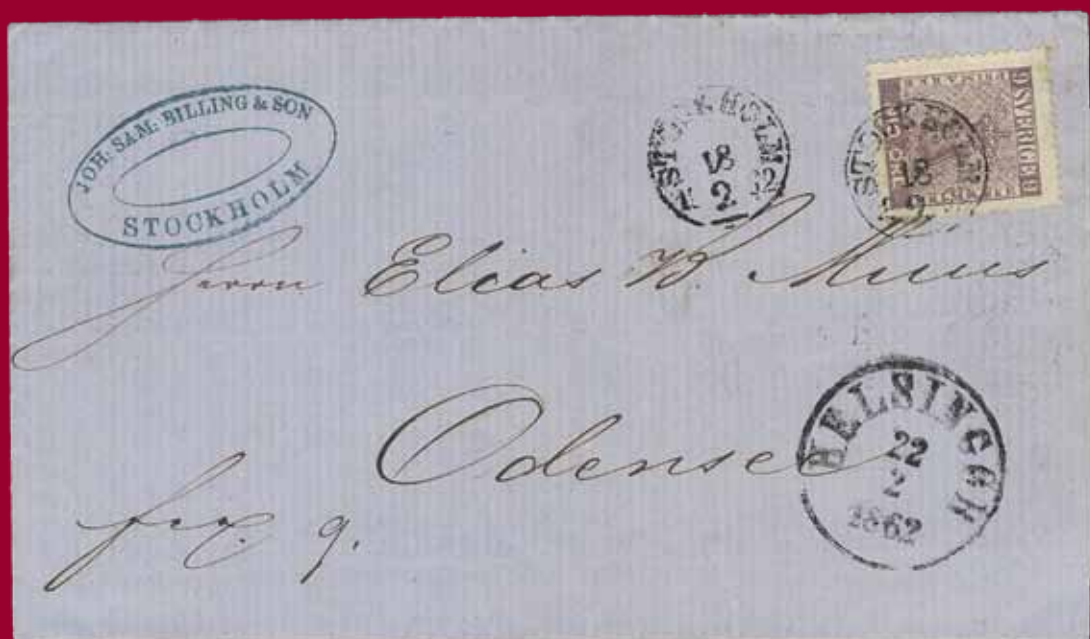 JOH: SAM: BILLING & SON
STOCKHOLM
STOCKHOLM
18
2
STOCKHOLM
18
2
9 SVERIGE 9
FRIMÄRKE
Herrn Elias B. Muus
Odense
HELSINGÖR
22
2
1862
fco. 9.